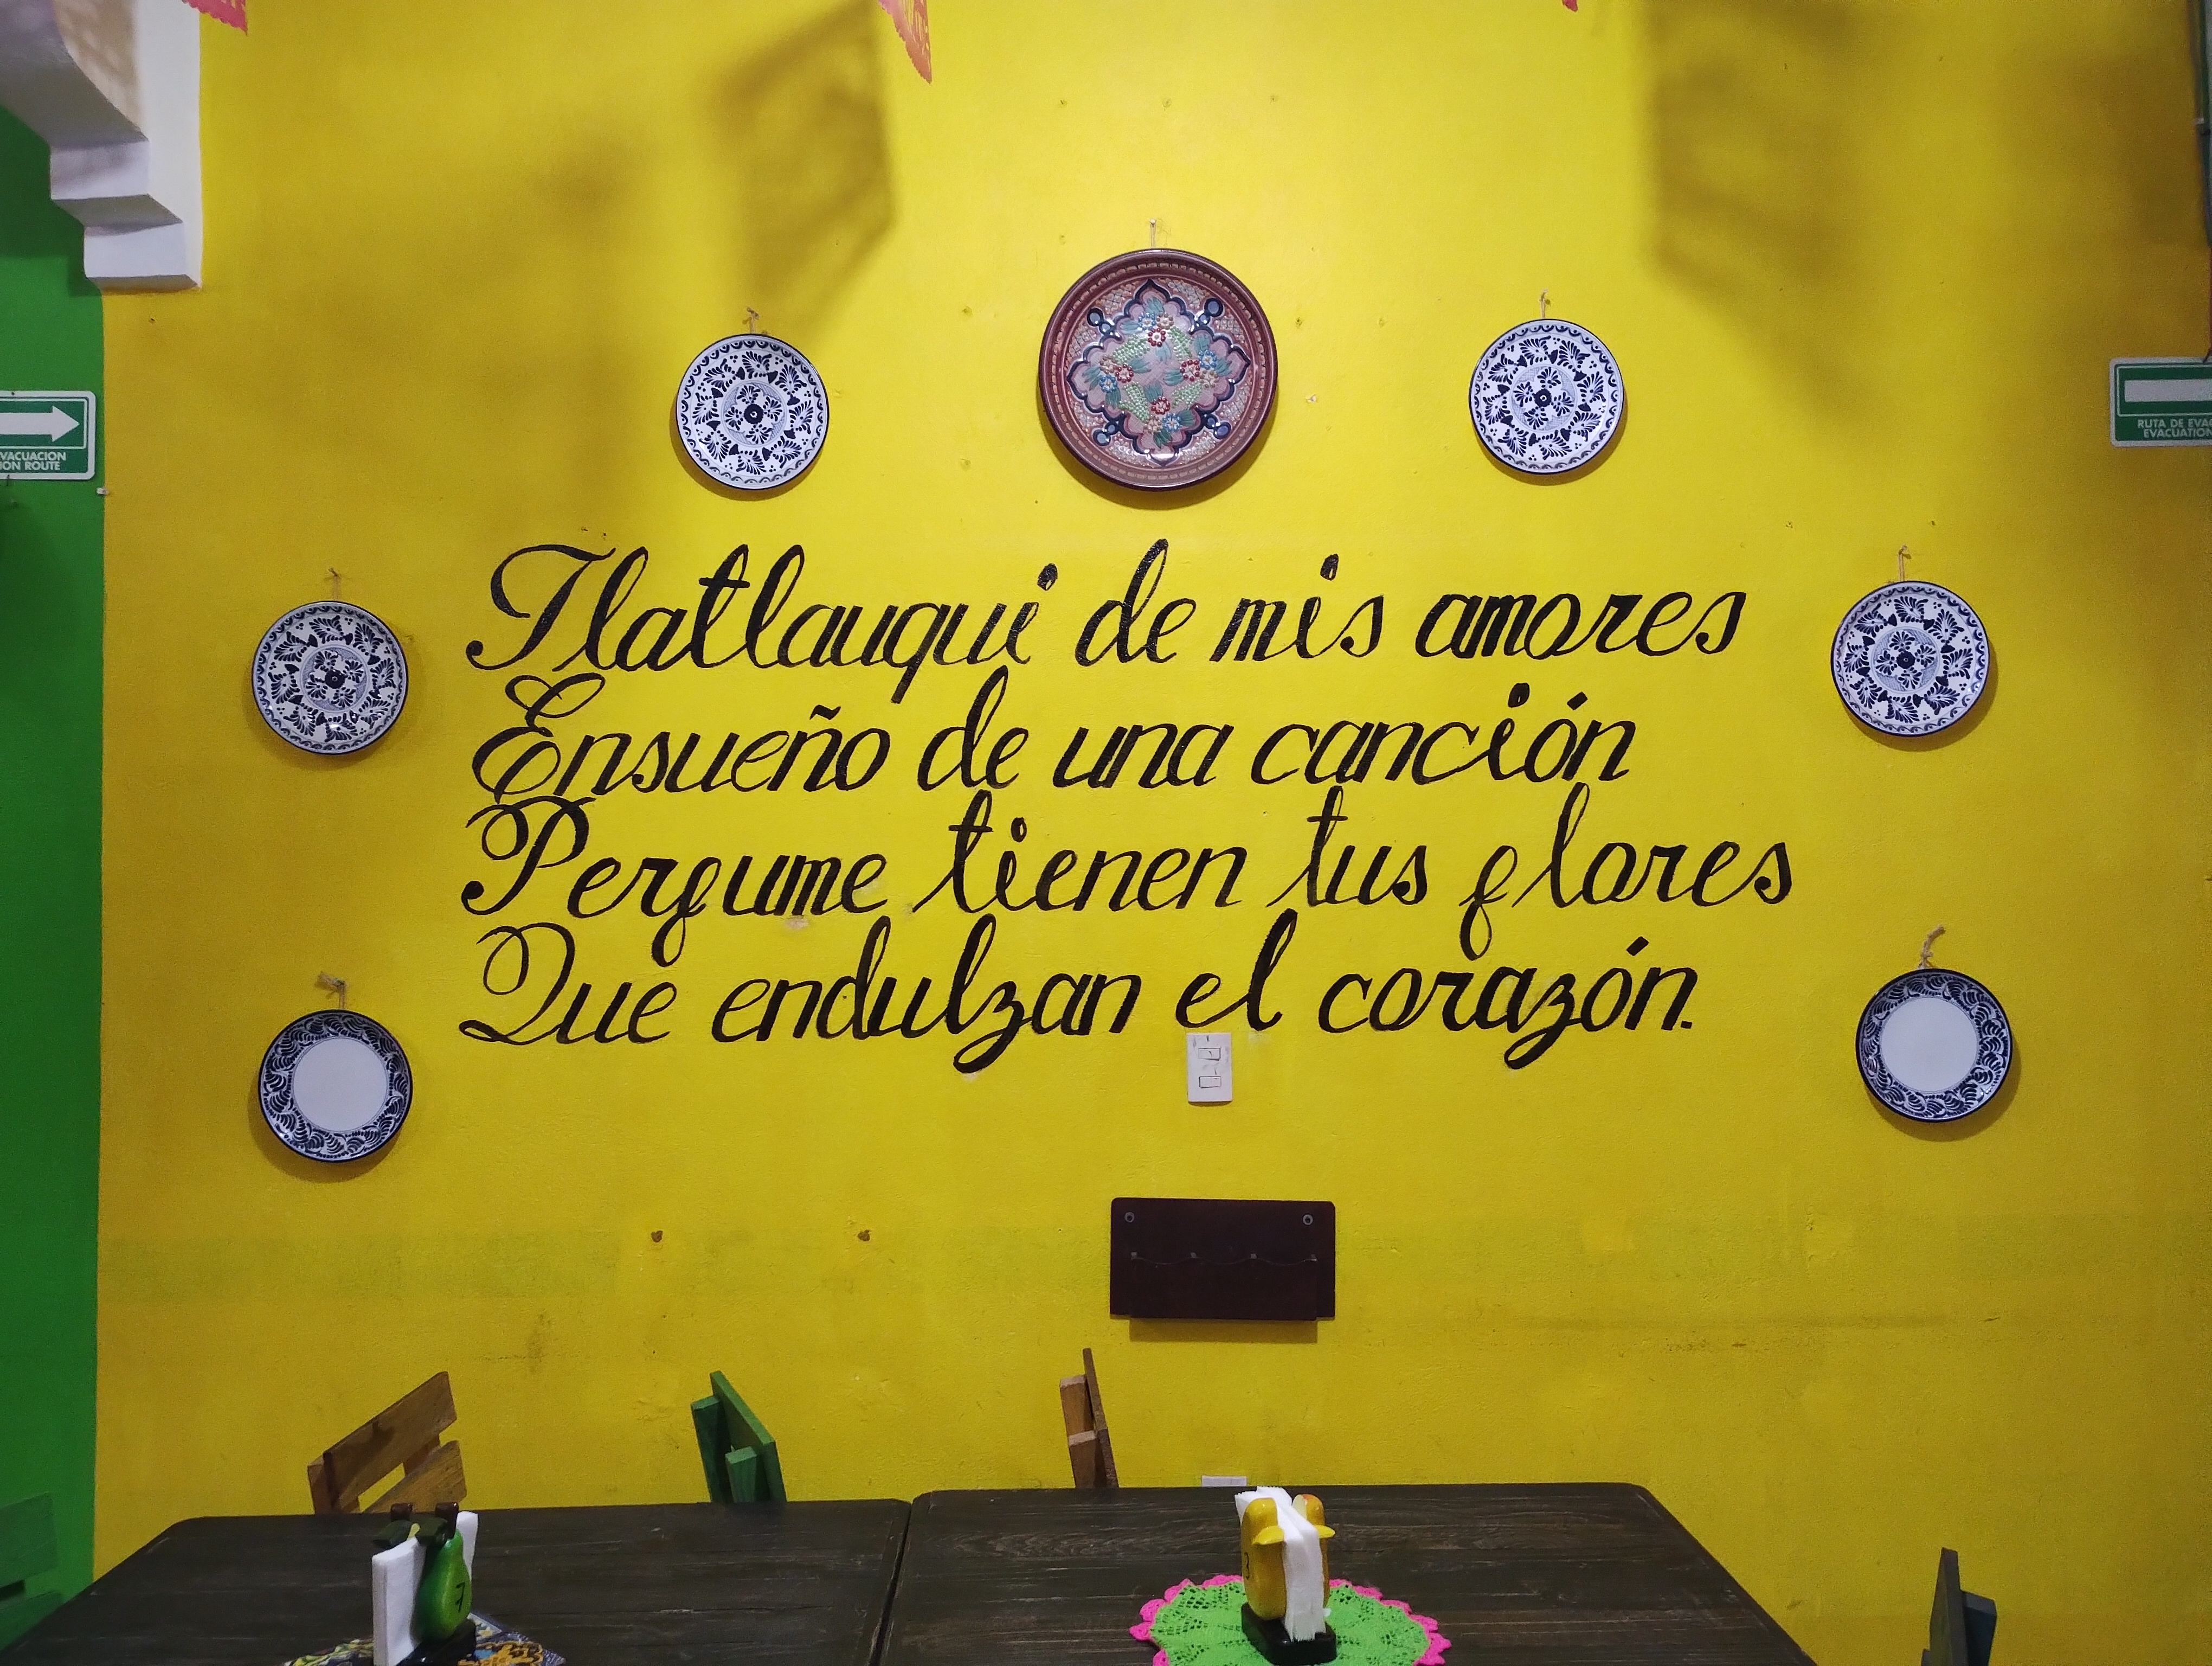 VACUACION
ION ROUTE
RUTA DE EVA
EVACUATION
Tlatlauqui de mis amores
Ensueño de una canción
Perfume tienen tus flores
Que endulzan el corazón.
7
3